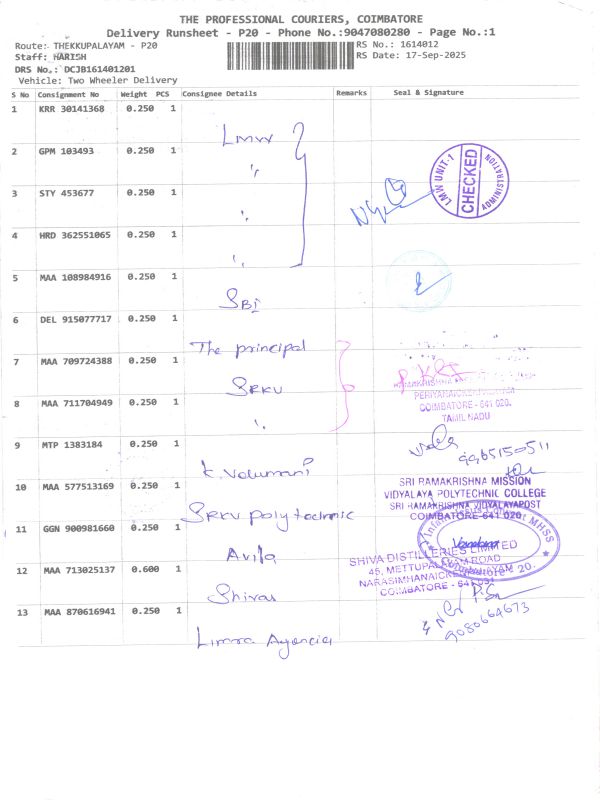 THE PROFESSIONAL COURIERS, COIMBATORE
Delivery Runsheet - P20 - Phone No.:9047080280 - Page No.:1
Route: THEKKUPALAYAM - P20
RS No.: 1614012
Staff: HARISH
RS Date: 17-Sep-2025
DRS No.: DCJB161401201
Vehicle: Two Wheeler Delivery
S No Consignment No Weight PCS Consignee Details Remarks Seal & Signature
1 KRR 30141368 0.250 1
LMW
2 GPM 103493 0.250 1
"
LMW UNIT-1
CHECKED
ADMINISTRATION
3 STY 453677 0.250 1
"
4 HRD 362551065 0.250 1
"
5 MAA 108984916 0.250 1
SBI
6 DEL 915077717 0.250 1
The principal
7 MAA 709724388 0.250 1
SRKV
PERIYANAICKENPALAYAM
COIMBATORE - 641 020.
TAMIL NADU
8 MAA 711704949 0.250 1
"
9 MTP 1383184 0.250 1
K. Velumani
10 MAA 577513169 0.250 1
SRKV polytechnic
SRI RAMAKRISHNA MISSION
VIDYALAYA POLYTECHNIC COLLEGE
SRI RAMAKRISHNA VIDYALAYAPOST
COIMBATORE-641 020
11 GGN 900981660 0.250 1
Avila
MHSS
12 MAA 713025137 0.600 1
Shivas
SHIVA DISTILLERIES LIMITED
45, METTUPALAYAM ROAD
NARASIMHANAICKENPALAYAM
COIMBATORE - 641 031
13 MAA 870616941 0.250 1
9080664673